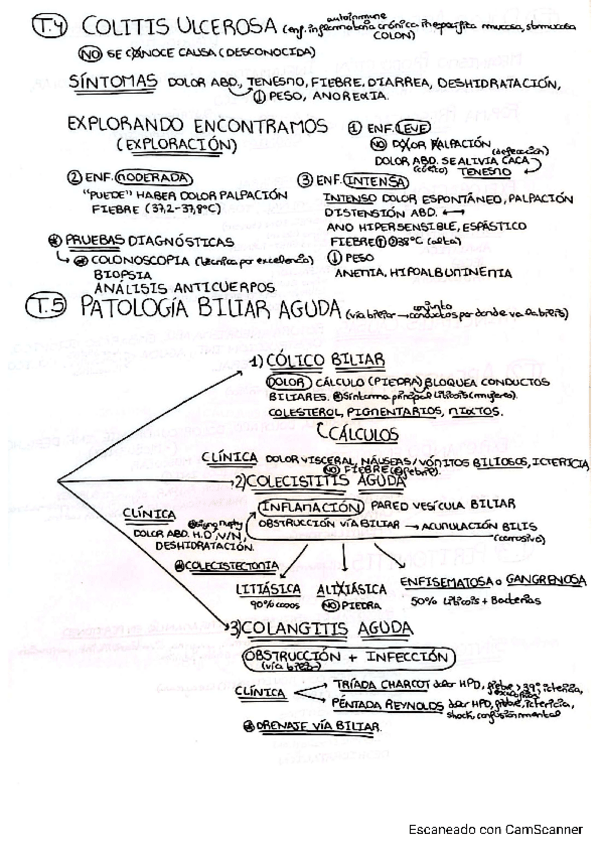 T.4 COLITIS ULCEROSA (enf. inflamatoria crónica inespecífica mucosa, submucosa
autoinmune
COLON)
NO SE CONOCE CAUSA (DESCONOCIDA)
SÍNTOMAS DOLOR ABD, TENESMO, FIEBRE, DIARREA, DESHIDRATACIÓN,
↓ PESO, ANOREXIA.
EXPLORANDO ENCONTRAMOS
(EXPLORACIÓN)
1 ENF. LEVE
NO DOLOR PALPACIÓN
DOLOR ABD. SE ALIVIA CACA (defecación)
(recto) TENESMO
2 ENF. MODERADA
"PUEDE" HABER DOLOR PALPACIÓN
FIEBRE (37,2-37,8ºC)
3 ENF. INTENSA
INTENSO DOLOR ESPONTÁNEO, PALPACIÓN
DISTENSIÓN ABD. ↔
ANO HIPERSENSIBLE, ESPÁSTICO
FIEBRE ↑ 38ºC (alta)
↓ PESO
ANEMIA, HIPOALBUMINEMIA
PRUEBAS DIAGNÓSTICAS
COLONOSCOPIA (técnica por excelencia)
BIOPSIA
ANÁLISIS ANTICUERPOS
T.5 PATOLOGÍA BILIAR AGUDA (vía biliar → conjunto conductos por donde va la bilis)
1) CÓLICO BILIAR
DOLOR CÁLCULO (PIEDRA) BLOQUEA CONDUCTOS
BILIARES. Síntoma principal litiasis (mujeres).
COLESTEROL, PIGMENTARIOS, MIXTOS.
CÁLCULOS
CLÍNICA DOLOR VISCERAL, NÁUSEAS/VÓMITOS BILIOSOS, ICTERICIA
NO FIEBRE
2) COLECISTITIS AGUDA
INFLAMACIÓN PARED VESÍCULA BILIAR
OBSTRUCCIÓN VÍA BILIAR → ACUMULACIÓN BILIS
(corrosivo)
CLÍNICA
DOLOR ABD. H.D, V/N,
DESHIDRATACIÓN.
COLECISTECTOMIA
LITIÁSICA
90% casos
ALITIÁSICA
NO PIEDRA
ENFISEMATOSA o GANGRENOSA
50% Litiasis + Bacterias
3) COLANGITIS AGUDA
OBSTRUCCIÓN + INFECCIÓN
(vía biliar)
CLÍNICA
TRÍADA CHARCOT dolor HPD, fiebre > 39º, ictericia,
PÉNTADA REYNOLDS dolor HPD, fiebre, ictericia,
shock, confusión mental
DRENAJE VÍA BILIAR.
Escaneado con CamScanner